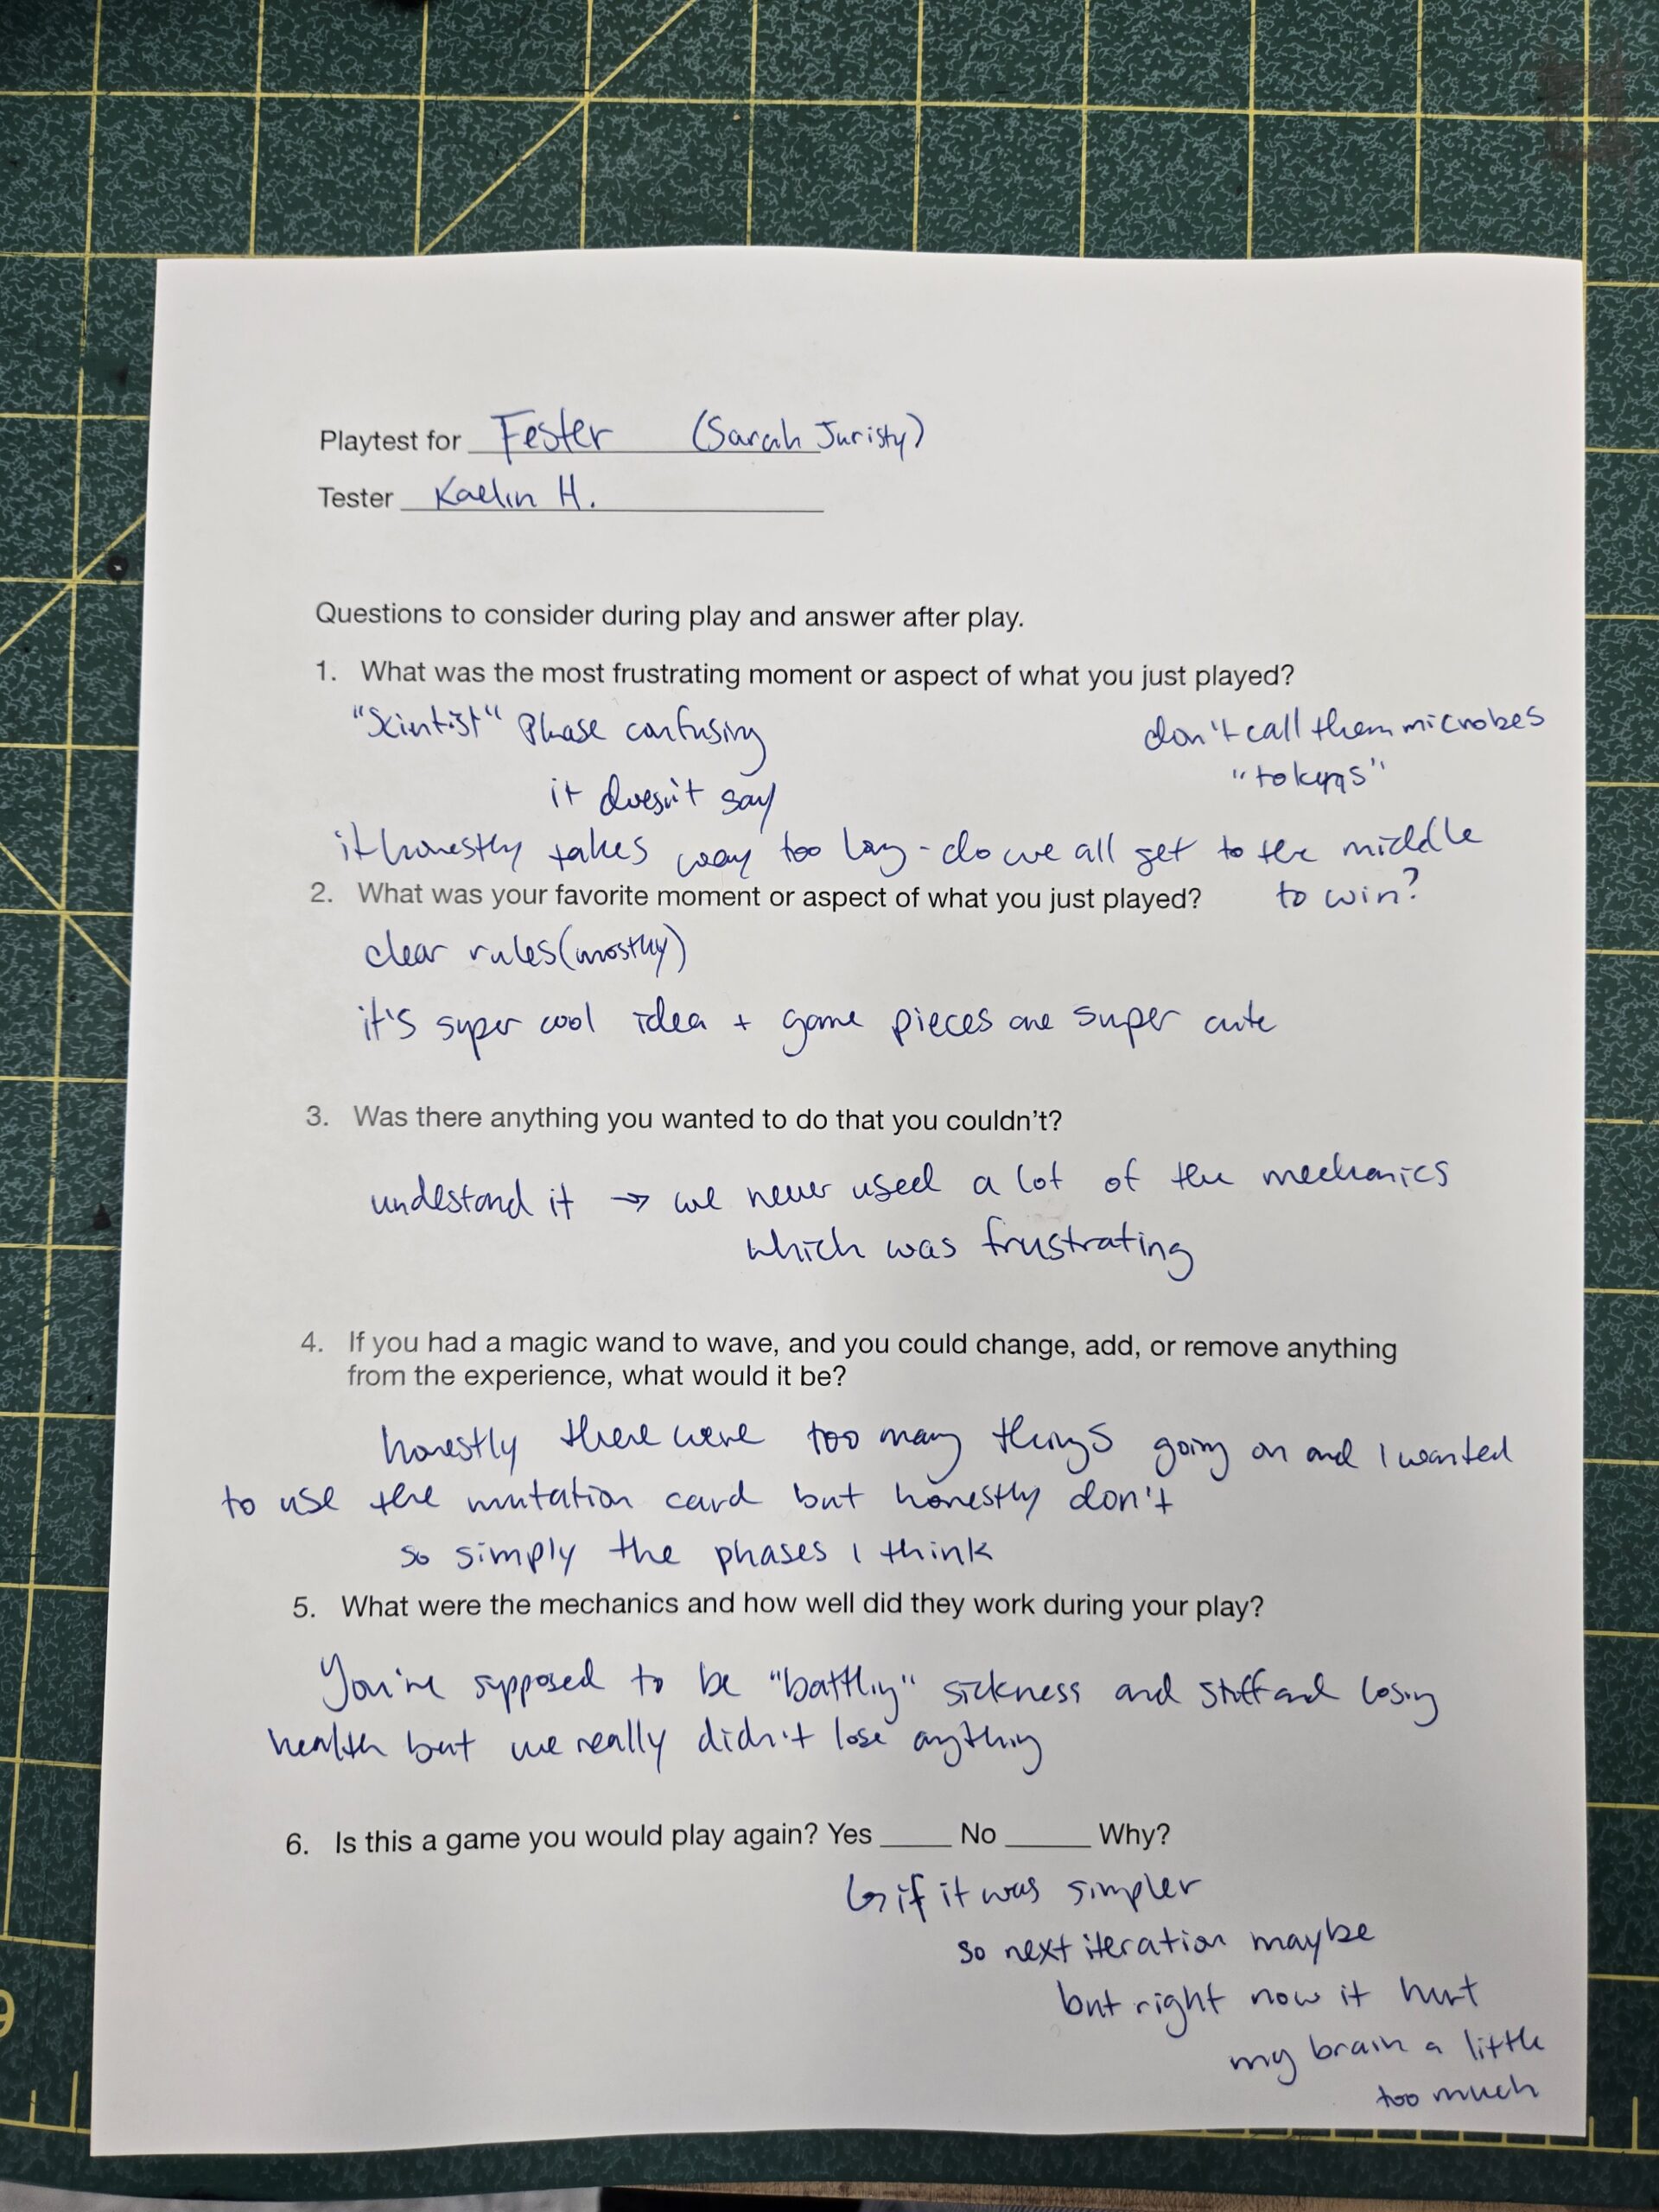 Playtest for Fester (Sarah Juristy)
Tester Kaelin H.
Questions to consider during play and answer after play.
1. What was the most frustrating moment or aspect of what you just played?
"Scintist" Phase confusing
don't call them microbes
"tokens"
it doesn't say
it honestly takes way too long - do we all get to the middle
to win?
2. What was your favorite moment or aspect of what you just played?
clear rules (mostly)
it's super cool idea + game pieces are super cute
3. Was there anything you wanted to do that you couldn't?
undestand it → we never used a lot of the mechanics
which was frustrating
4. If you had a magic wand to wave, and you could change, add, or remove anything
from the experience, what would it be?
honestly there were too many things going on and I wanted
to use the mutation card but honestly don't
so simply the phases I think
5. What were the mechanics and how well did they work during your play?
You're supposed to be "battling" sickness and stuff and losing
health but we really didn't lose anything
6. Is this a game you would play again? Yes _____ No _____ Why?
↳ if it was simpler
so next iteration maybe
but right now it hurt
my brain a little
too much
9